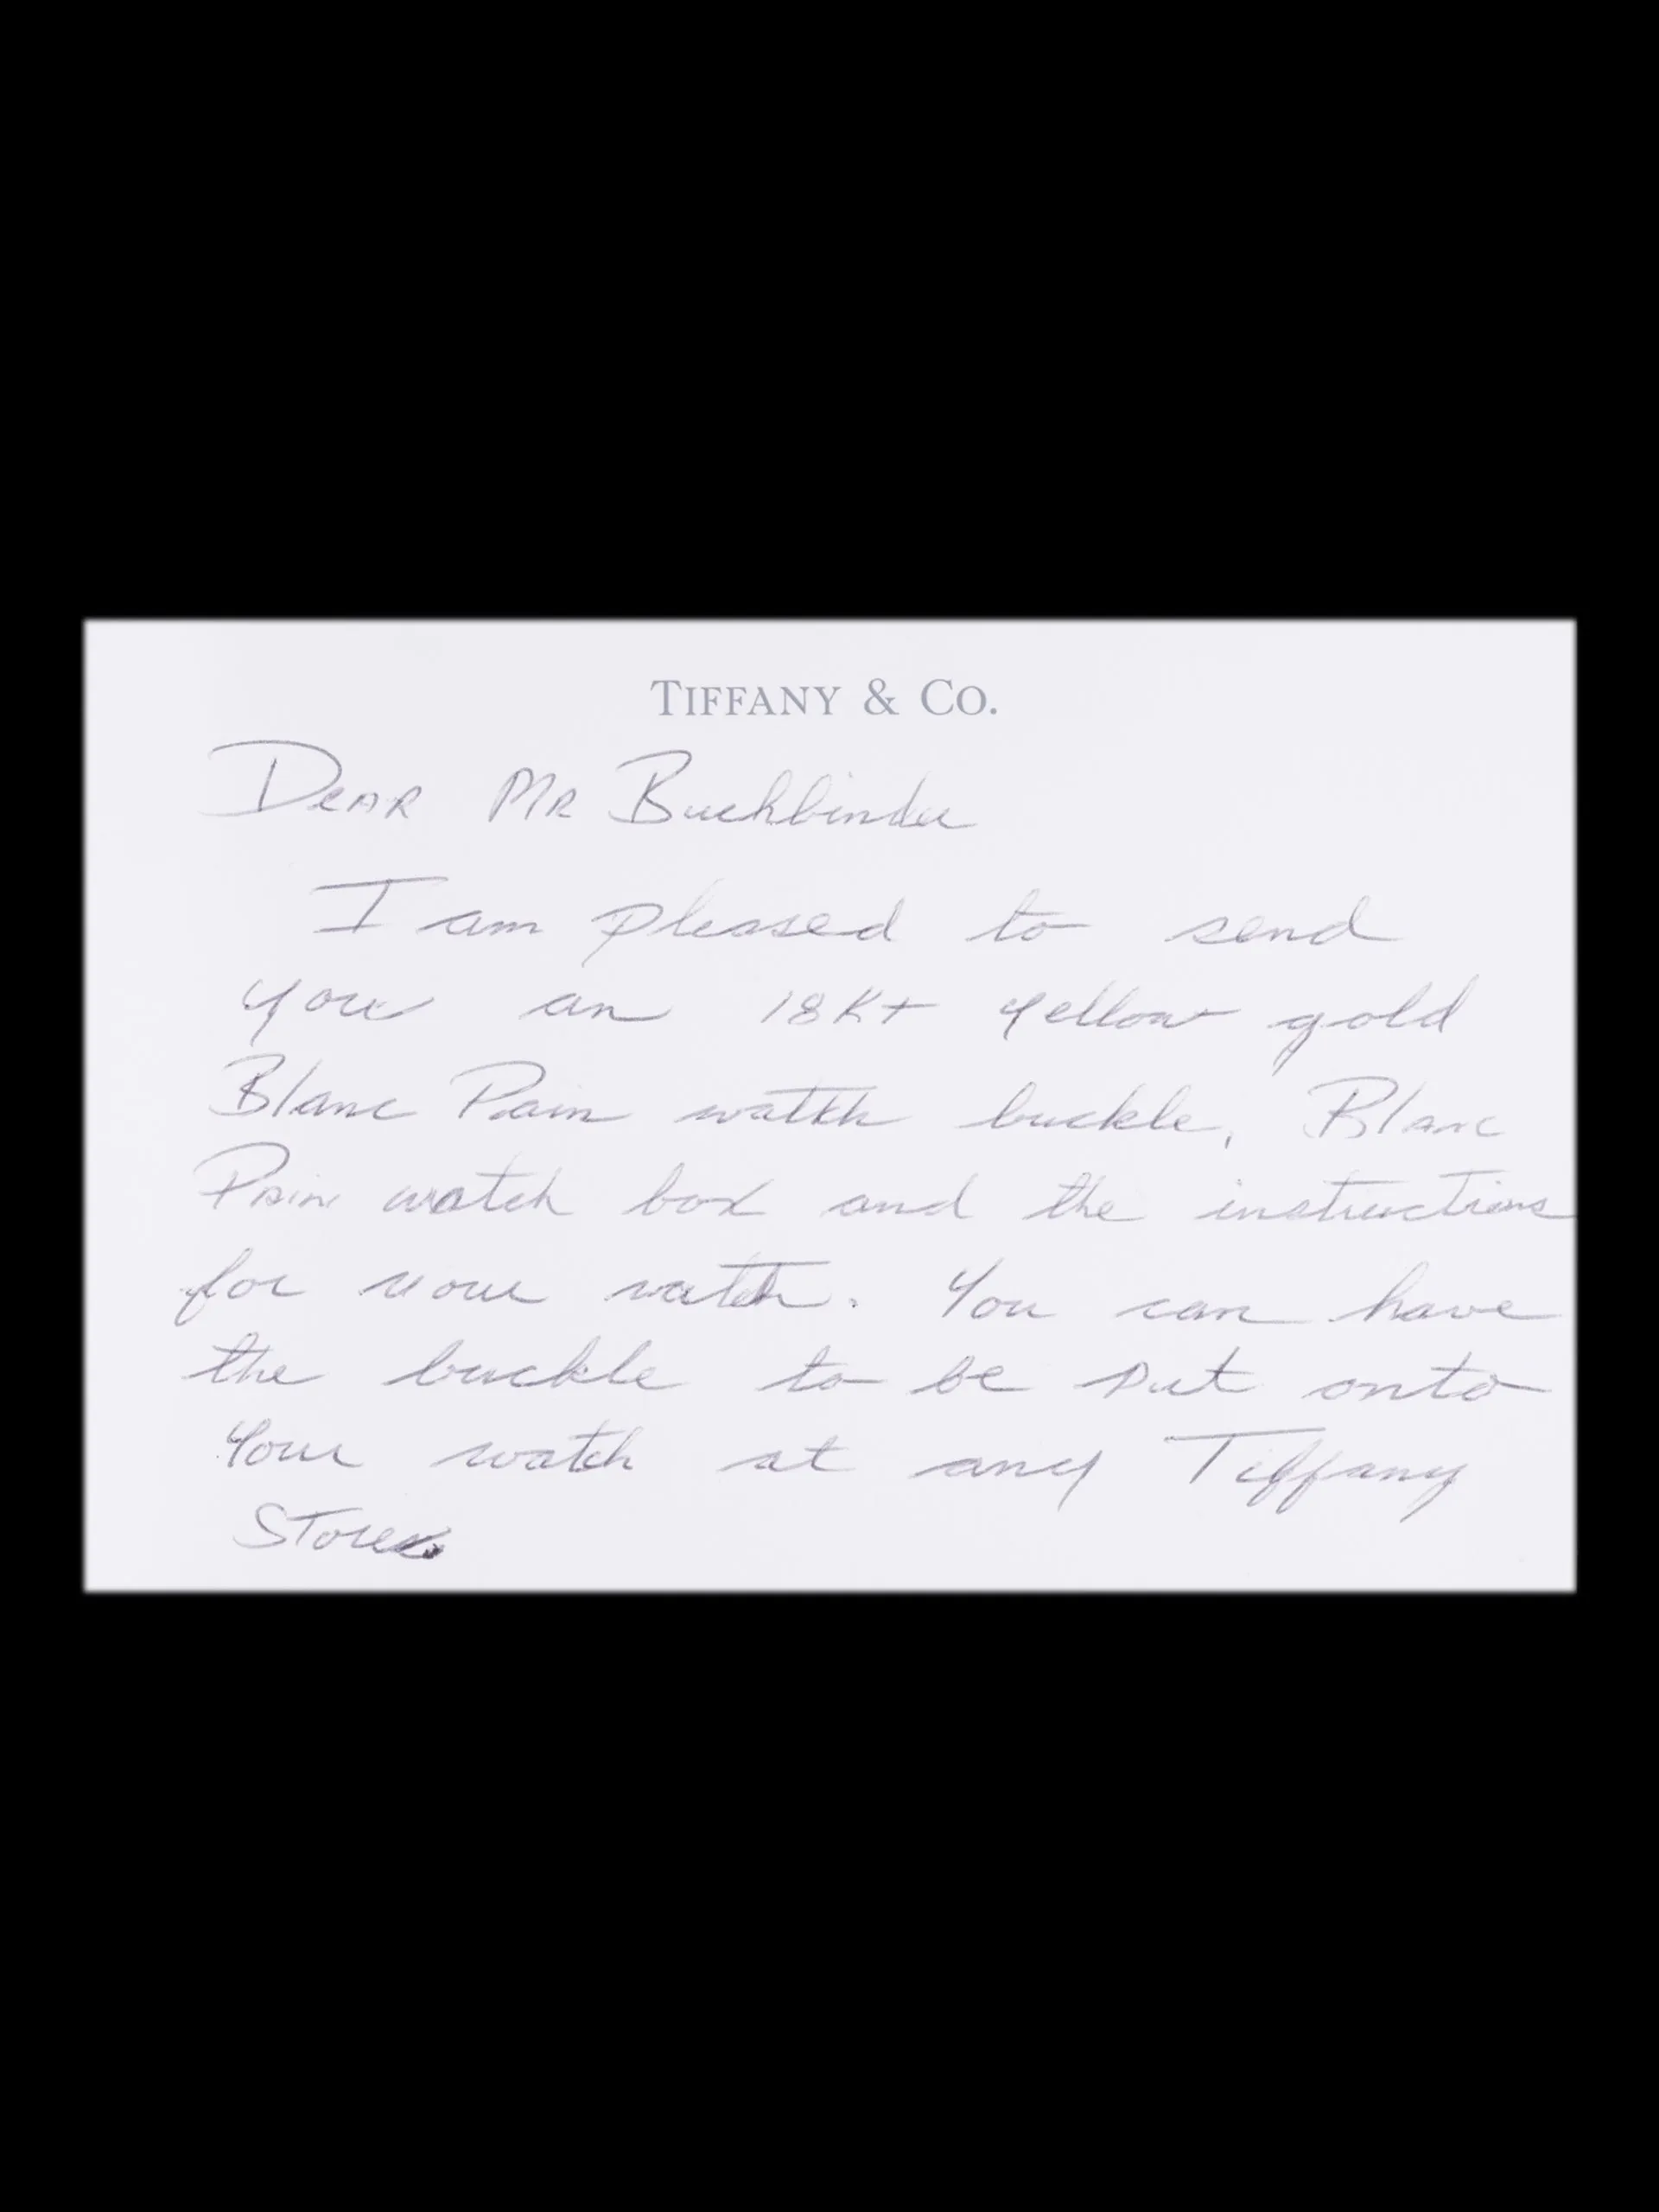 TIFFANY & CO.
Dear Mr Buchbinder
I am pleased to send
you an 18Kt yellow gold
Blanc Pain watch buckle, Blanc
Pain watch box and the instructions
for your watch. You can have
the buckle to be put onto
your watch at any Tiffany
Store.